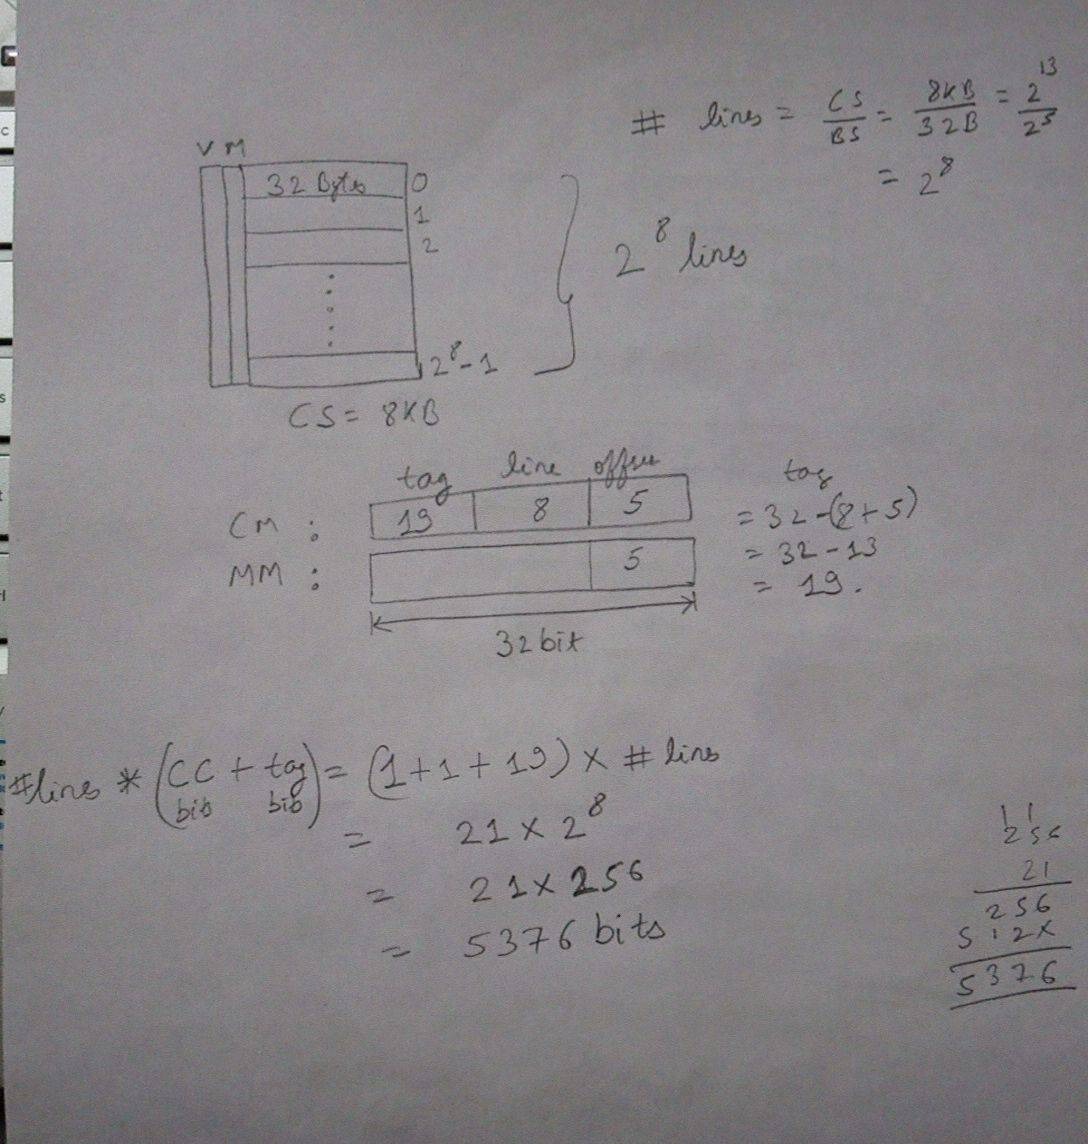 # lines = CS/BS = 8KB/32B = 2^13/2^5
= 2^8
V M
32 Bytes 0
1
2
2^8 lines
2^8-1
CS = 8KB
tag line offset
CM : 19 8 5
MM : 5
32 bit
tag
= 32-(8+5)
= 32-13
= 19.
#lines * (CC + tag) = (1+1+19) × # lines
bits bits
= 21 × 2^8
= 21 × 256
= 5376 bits
1 1
256
21
256
512×
5376